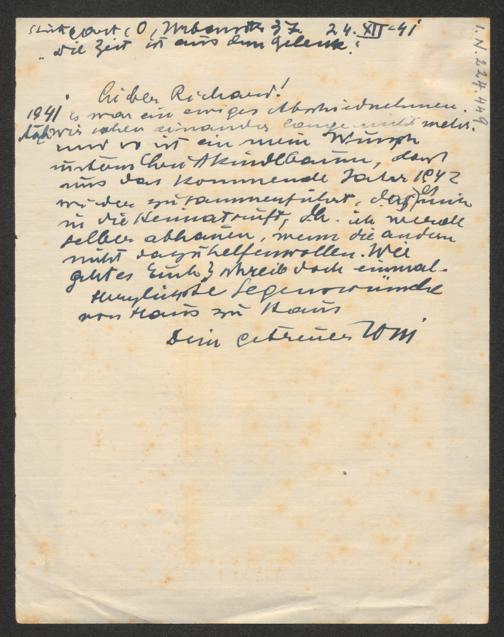 Stuttgart, O, Urbanstr. 37. 24. XII. 41
"Die Zeit ist aus dem Gelenk".
I.N 224.449
Lieber Richard!
1941 es war ein ewiges Abschiednehmen.
wir sahen einander lange nicht mehr.
und so ist ein mein Wunsch
Christkindlbaum, dass
uns das kommende Jahr 1942
wieder zusammenführt, dass mich
in die Heimat ruft, d.h. ich werde
selber abhauen, wenn die andern
nicht dazu helfen wollen. Wie
geht es Euch? schreib doch einmal.
Herzlichste Segenswünsche
von Haus zu Haus
Dein getreuer